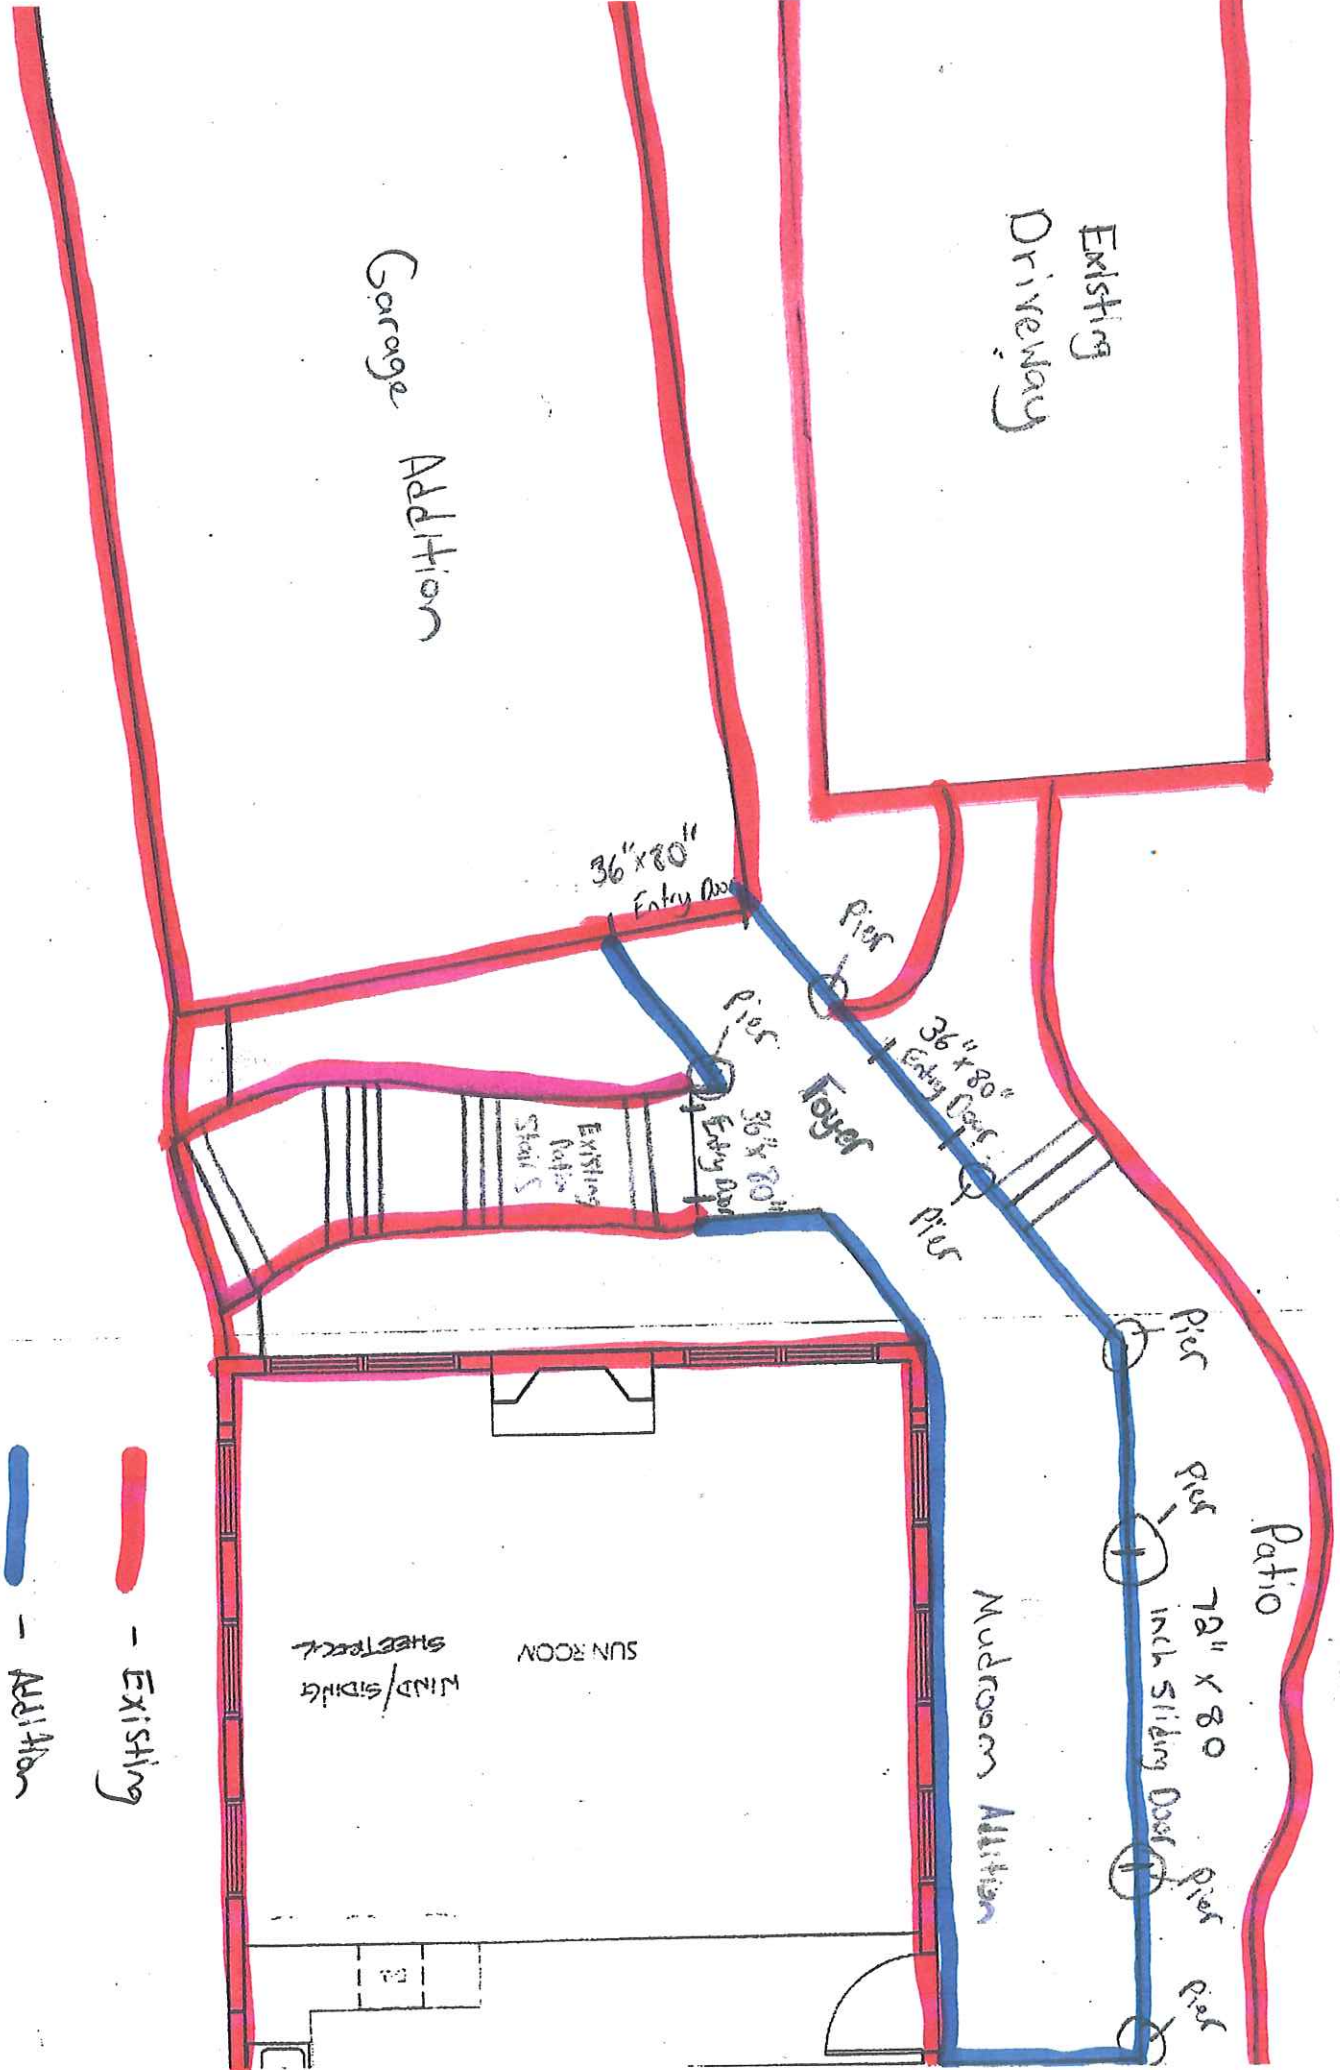 Existing
Driveway
Garage Addition
36"x80"
Entry Door
Pier
Pier
36"x80"
Entry Door
Foyer
36"x80"
Entry Door
Existing
Patio
Stairs
Pier
Pier
Pier
Patio
72" x 80
inch Sliding Door
Mudroom Addition
Pier
Pier
SUN ROOM
WIND/SIDING
SHEETROCK
- Existing
- Addition